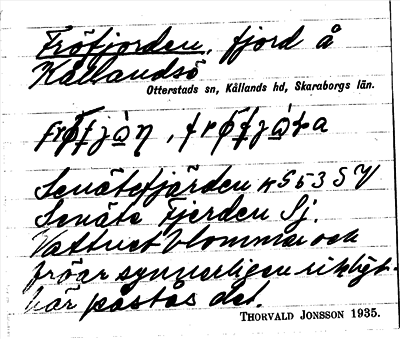 Fröfjorden, fjord å
Kållandsö
Otterstads sn, Kållands hd, Skaraborgs län.
Senätefjärden
Senäte Fjerden Sj.
Vattnet blommar och
fröar synnerligen rikligt
här påstås det.
THORVALD JONSSON 1935.